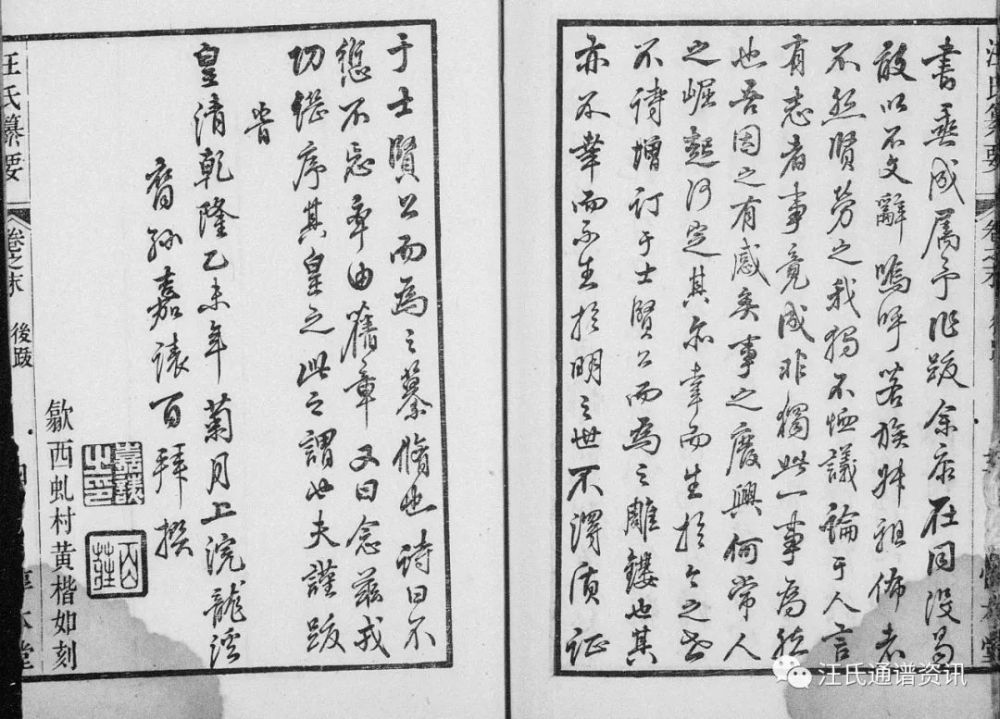 書垂成屬予作跋余忝在同沒曷
敢以不文辭嗚呼若族姪祖佈老
不然賢勞之我獨不恤議論于人言
有志者事竟成非獨此一事為然
也吾因之有感矣事之廢興何常人
之崛起何定其不幸而生於今之世
不詩增訂于士賢公而為之雕鏤也其
亦不幸而不生於明之世不澤
于士賢公而為之纂脩也詩曰不
愆不忘率由舊章又曰念茲戎
功繼序其皇之此之謂也夫謹跋
旹
皇清乾隆乙未年菊月上浣龍溪
裔孫嘉 百拜撰
歙西虬村黃楷如刻
汪氏纂要
卷之末
後跋
汪氏通谱资讯